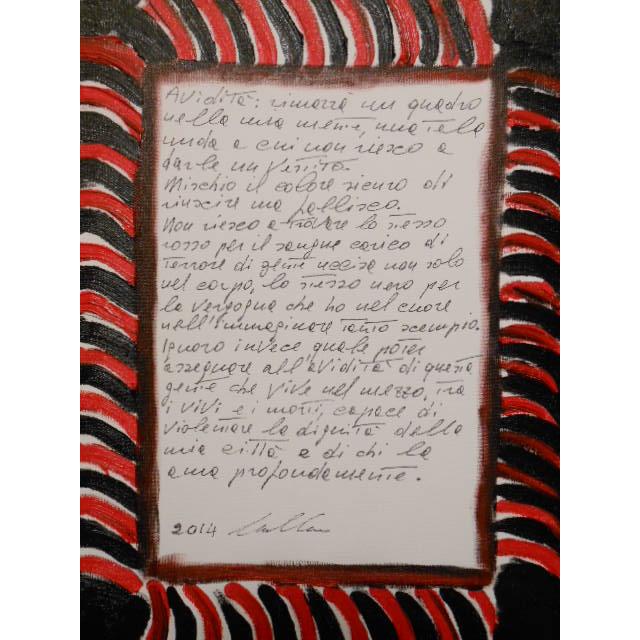 Avidità: rimarrà un quadro
nella mia mente, una tela
nuda a cui non riesco a
darle un vestito.
Mischio il colore sicuro di
riuscire ma fallisco.
Non riesco a trovare lo stesso
rosso per il sangue carico di
terrore di gente uccisa non solo
nel corpo, lo stesso nero per
la vergogna che ho nel cuore
nell'immaginare tanto scempio.
Ignoro invece quale poter
assegnare all'avidità di questa
gente che vive nel mezzo, tra
i vivi e i morti, capace di
violentare la dignità della
mia città e di chi la
ama profondamente.
2014